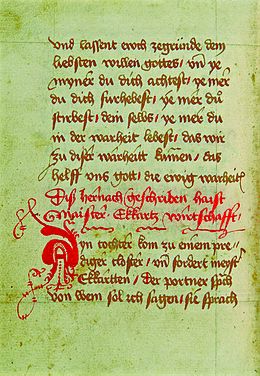 vnd lassent ewch zegründe dem
liebsten willen gottes / vn̄ ye
mynner du dich achtest / ye mer
du dich furhebest / ye mer du
stirbest / dem selbs / ye mer du
in der warheit lebest / das wir
zu diser warheitt kumen / das
helff vns gott / die ewig warheitt
Diß hernach geschriben haist
Maister Ekkartz wirtschafft /
Ain tochter kom zu ainem pre /
diger closter / vn̄ fordert meyst
Ekkartten / Der portner sp͛ch
von wem sol ich sagen / sie sprach